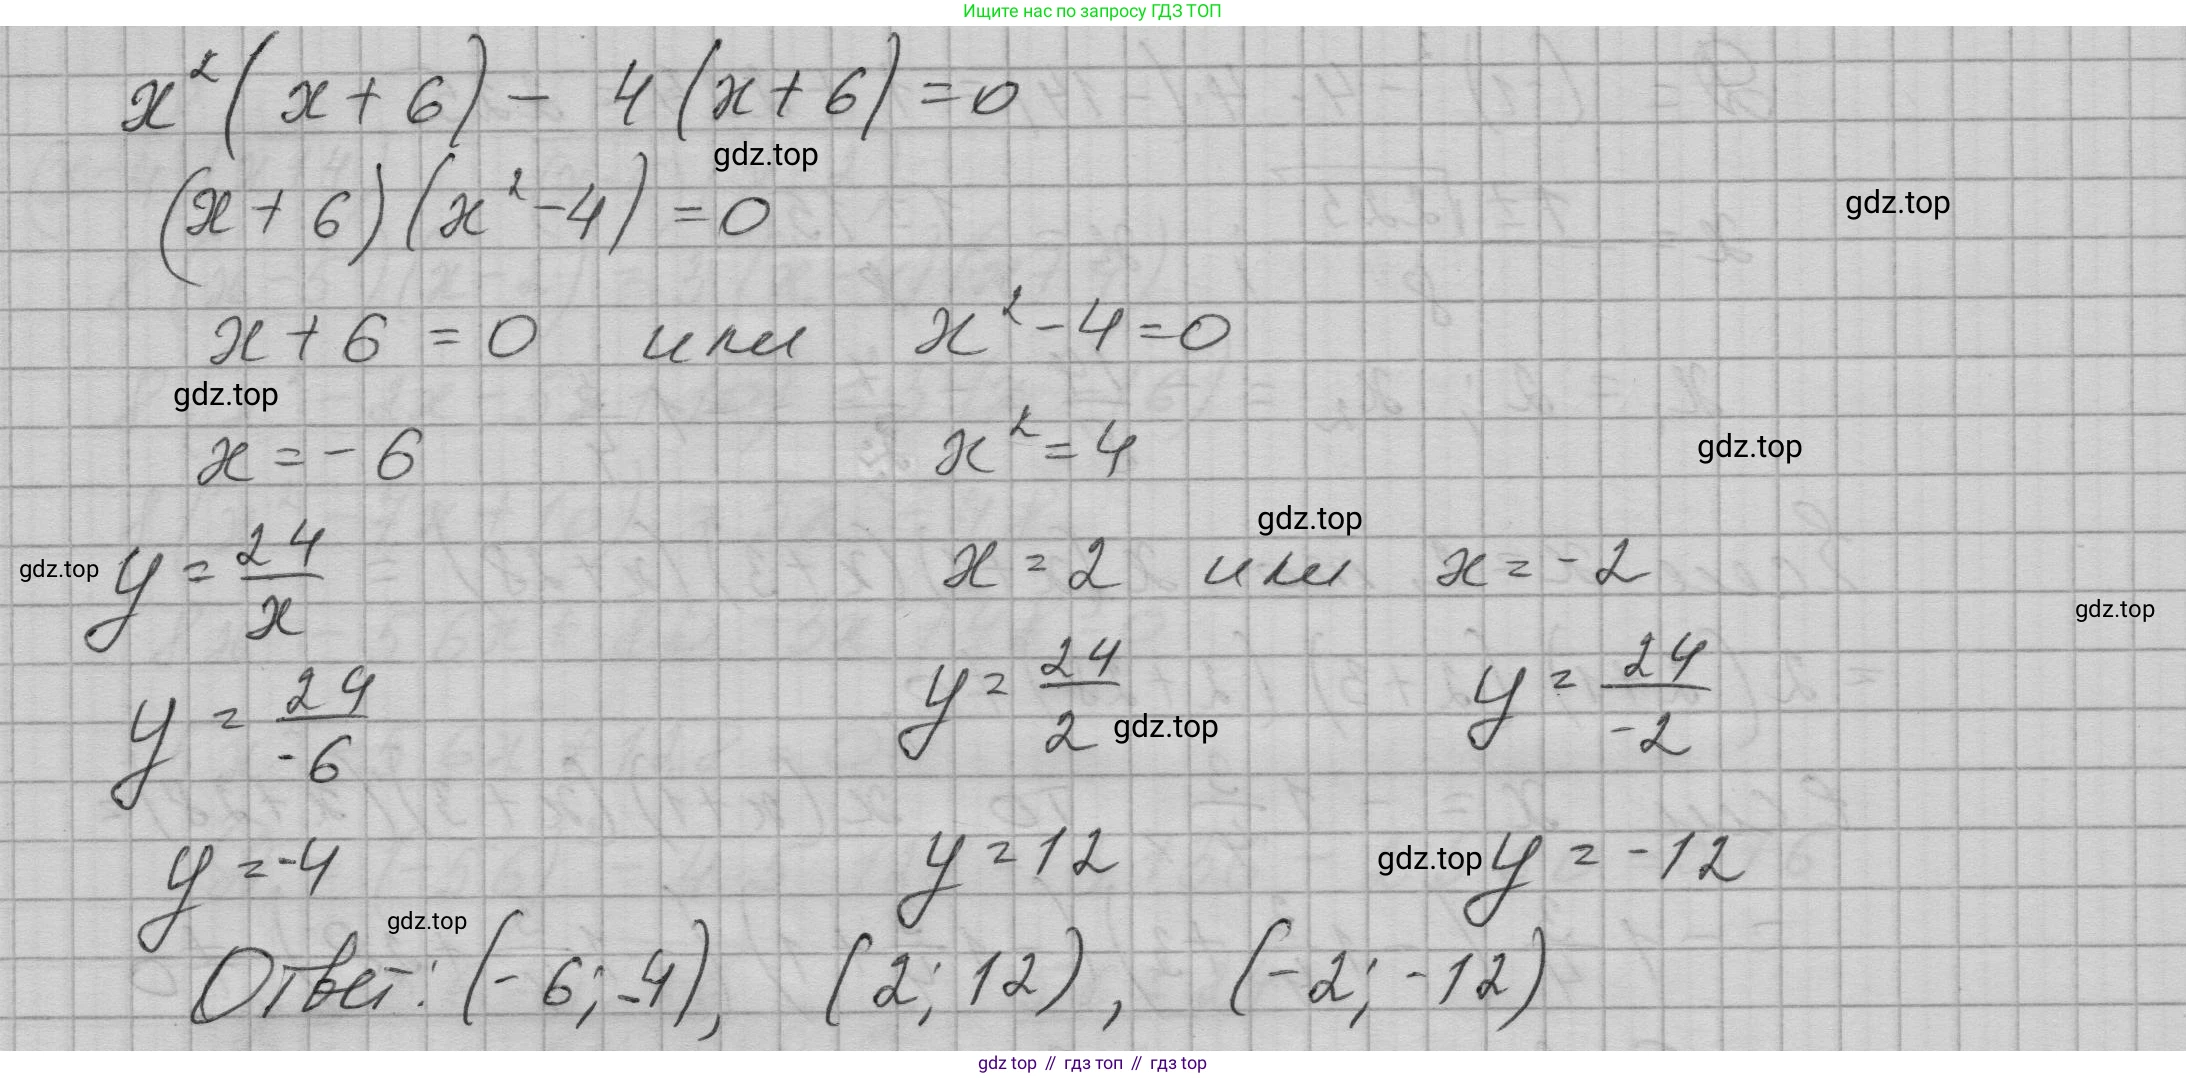 Ищите нас по запросу ГДЗ ТОП
x²(x+6) - 4(x+6) = 0
gdz.top
(x+6)(x²-4) = 0
gdz.top
x+6 = 0 или x²-4=0
gdz.top
x = -6 x² = 4
gdz.top
gdz.top
gdz.top y = 24/x x = 2 или x = -2
gdz.top
y = 24/-6 y = 24/2 y = 24/-2
gdz.top
y = -4 y = 12 y = -12
gdz.top
gdz.top
Ответ: (-6; -4), (2; 12), (-2; -12)
gdz top // гдз топ // gdz top